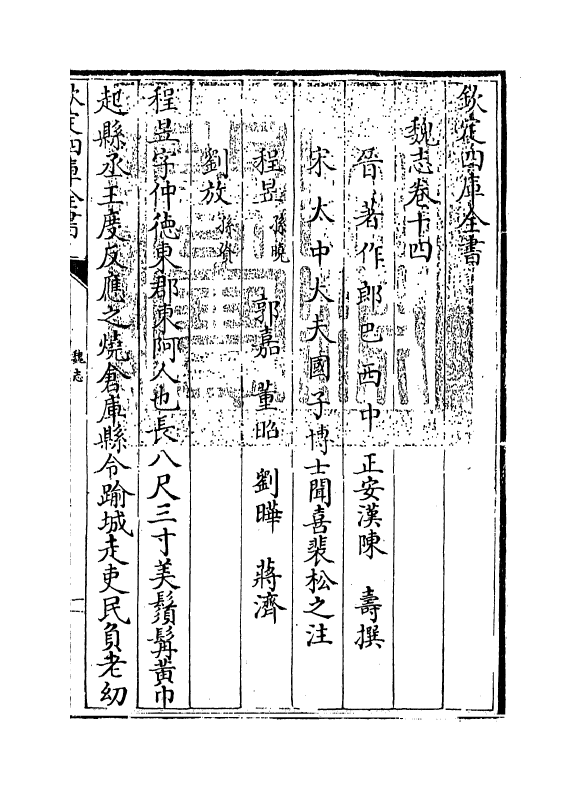 欽定四庫全書
魏志卷十四
晉著作郎巴西中正安漢陳壽撰
宋太中大夫國子博士聞喜裴松之注
程昱孫曉 郭嘉 董昭 劉曄 蔣濟
劉放孫資
程昱字仲徳東郡東阿人也長八尺三寸美鬚髯黃巾
起縣丞王度反應之燒倉庫縣令踰城走吏民負老幼
欽定四庫全書
魏志
一